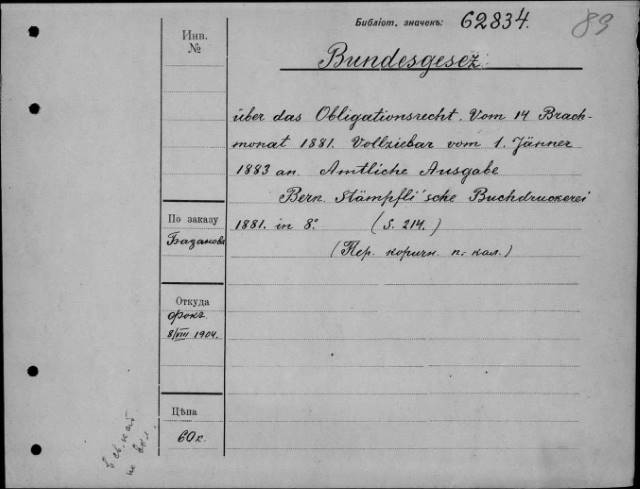 Библіот. значекъ: 62834. 89
Инв.
№
Bundesgesez
über das Obligationsrecht. Vom 14 Brach-
monat 1881. Vollziebar vom 1. Jänner
1883 an. Amtliche Ausgabe
Bern. Stämpfli'sche Buchdruckerei
1881. in 8º (S. 214.)
(Пер. коричн. п. кал.)
По заказу
Базанова
Откуда
8/VIII 1904.
Цѣна
60 к.